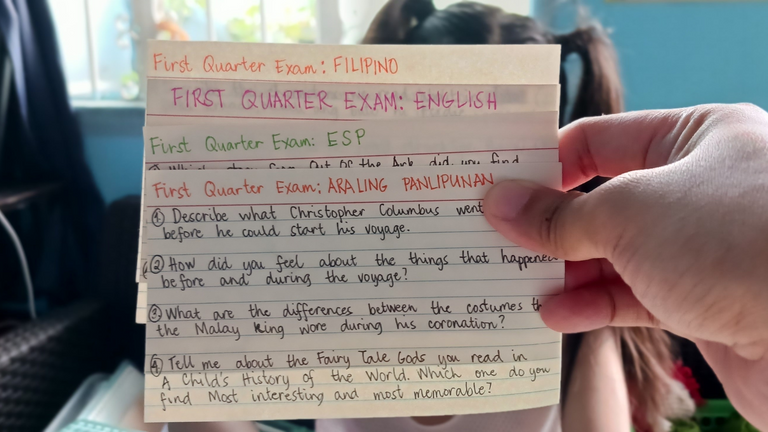 First Quarter Exam: FILIPINO
FIRST QUARTER EXAM: ENGLISH
First Quarter Exam: ESP
Which story from Out Of the Ark did you find
First Quarter Exam: ARALING PANLIPUNAN
① Describe what Christopher Columbus went
before he could start his voyage.
② How did you feel about the things that happened
before and during the voyage?
③ What are the differences between the costumes
the Malay king wore during his coronation?
④ Tell me about the Fairy Tale Gods you read in
A Child's History of the World. Which one do you
find Most interesting and most memorable?